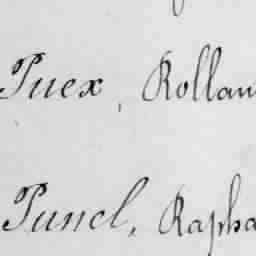 Puex, Rollan
Puncl, Rapha